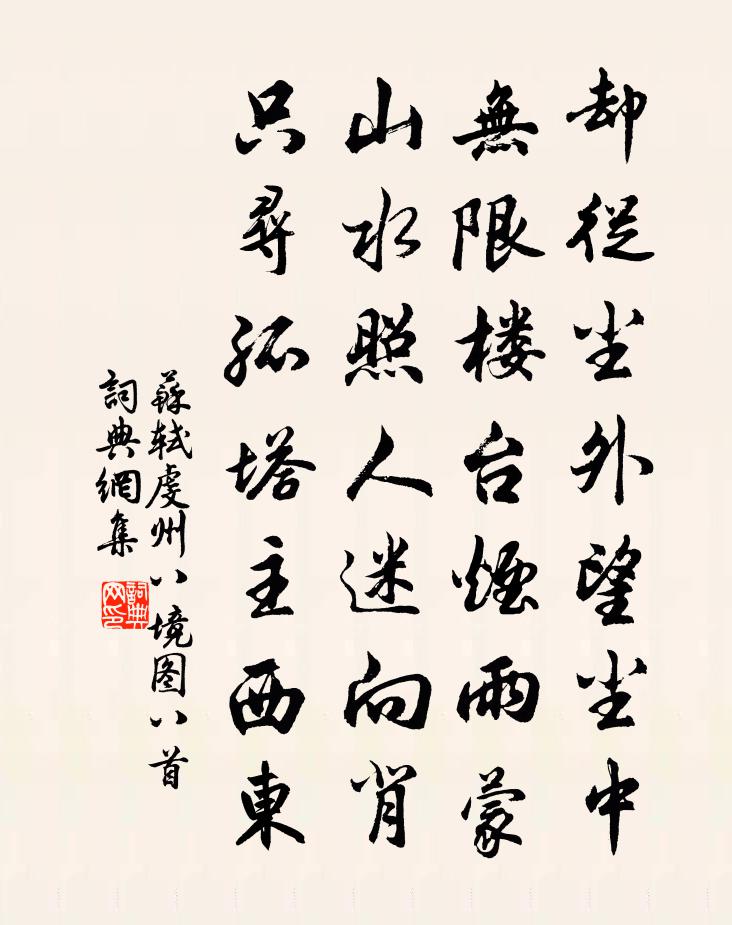 却從尘外望尘中
無限楼台煙雨蒙
山水照人迷向背
只尋孤塔主西東
蘇轼虔州八境图八首
詞典網集
詞典网印